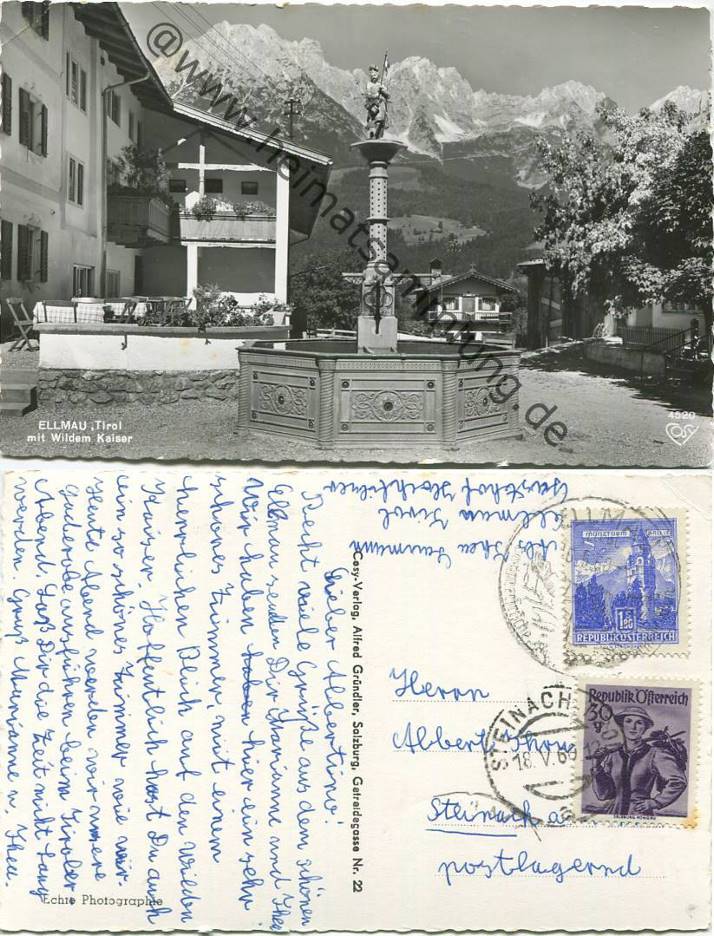 @www.heimatsammlung.de
ELLMAU, Tirol
mit Wildem Kaiser
4520
Cosy
Lieber Albertino!
Recht viele Grüße aus dem schönen
Ellmau senden Dir Marianne und Thea
Wir haben hier ein sehr
schönes Zimmer mit einem
herrlichen Blick auf den Wilden
Kaiser. Hoffentlich hast Du auch
ein so schönes Zimmer wie wir.
Heute Abend werden wir unsere
Garderobe ausführen beim Tiroler
Abend. Laß Dir die Zeit nicht lang
werden. Gruß Marianne u. Thea.
Echte Photographie
Cosy-Verlag, Alfred Gründler, Salzburg, Getreidegasse Nr. 22
Thea
Ellmau Tirol
Gasthof Hochfilzer
MÜNZTURM HALL i. T.
1.50
REPUBLIK ÖSTERREICH
Republik Österreich
30
g
STEINACH
18.V.60
Herrn
Albert
Steinach a.
postlagernd